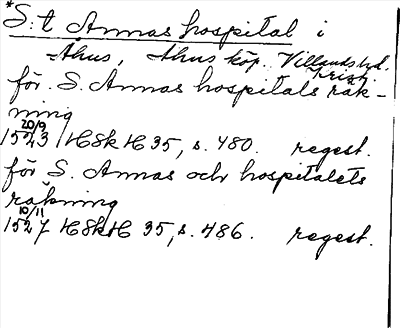 *S:t Annas hospital i
Åhus, Åhus köp. Villands hd.
Krist.
för S. Annas hospitals räk-
ning
1523 20/9 HSkH 35, s. 480. regest.
för S. Annas och hospitalets
räkning
1527 10/11 HSkH 35, s. 486. regest.